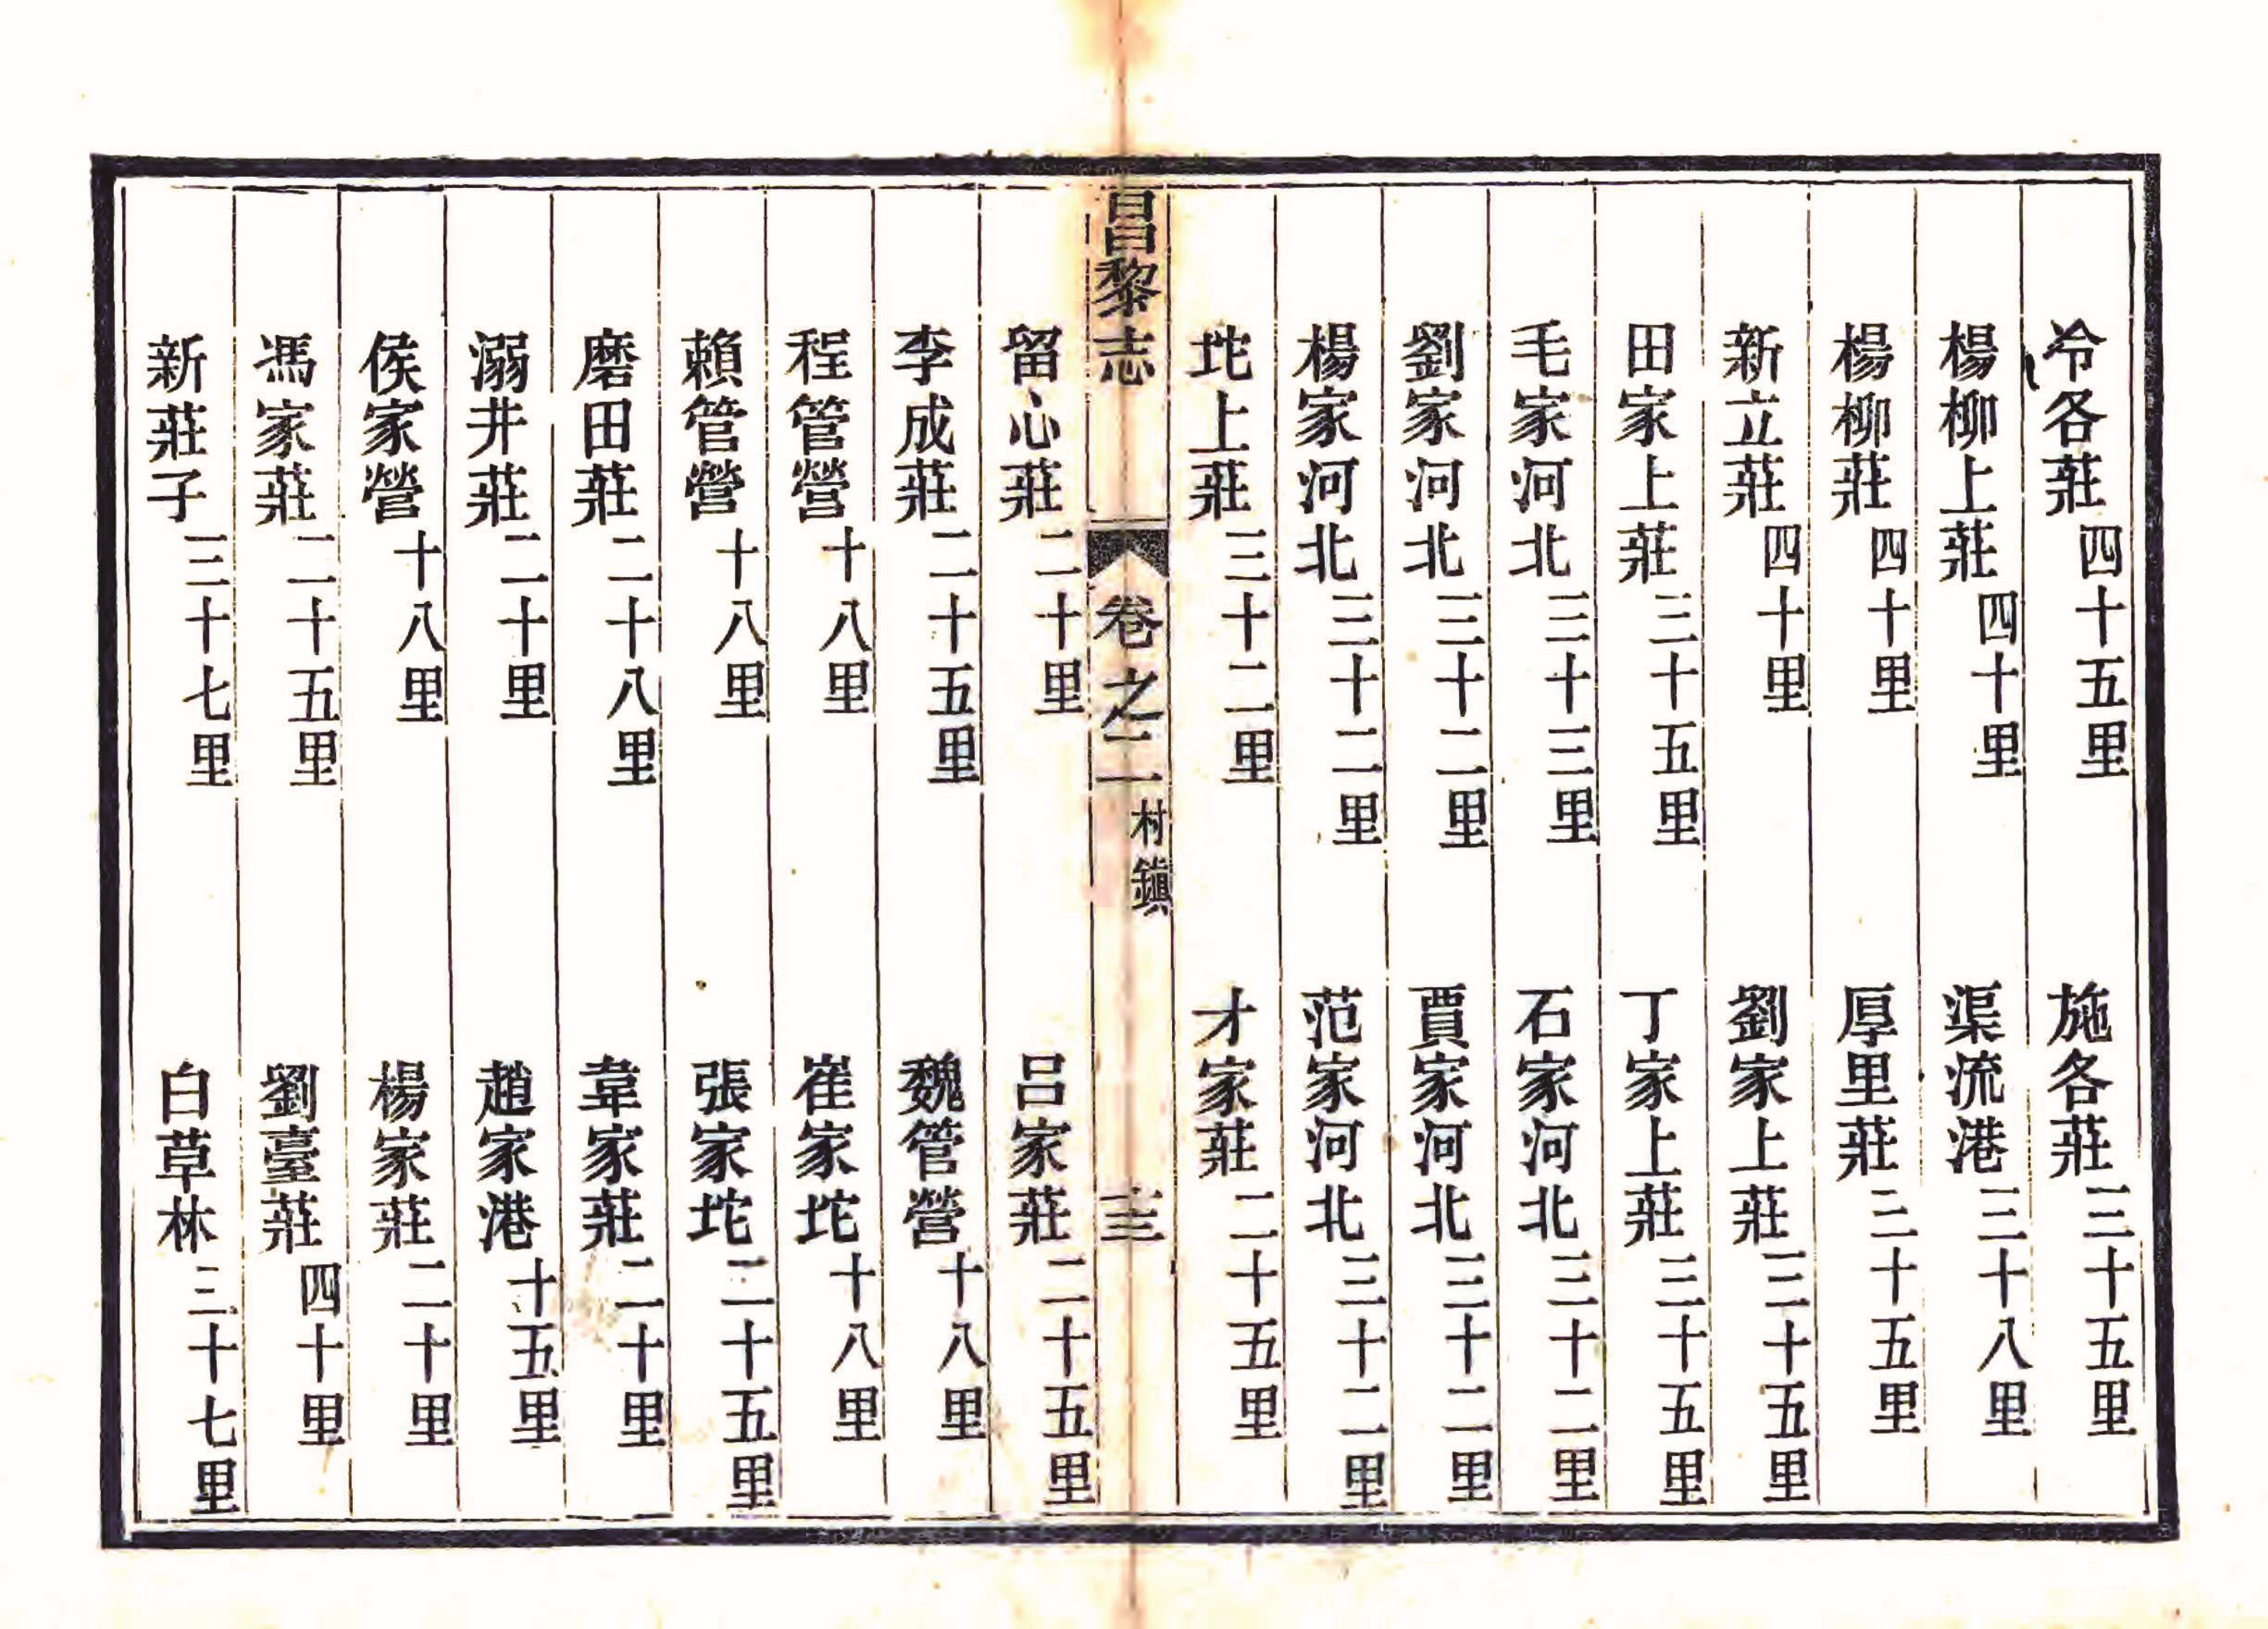 冷各莊四十五里　施各莊三十五里
楊柳上莊四十里　渠流港三十八里
楊柳莊四十里　厚里莊三十五里
新立莊四十里　劉家上莊三十五里
田家上莊三十五里　丁家上莊三十五里
毛家河北三十三里　石家河北三十二里
劉家河北三十二里　賈家河北三十二里
楊家河北三十二里　范家河北三十二里
坨上莊三十二里　才家莊二十五里
昌黎志　卷之二　村鎮　十三
留心莊二十里　吕家莊二十五里
李成莊二十五里　魏管營十八里
程管營十八里　崔家坨十八里
賴管營十八里　張家坨二十五里
磨田莊二十八里　韋家莊二十里
溺井莊二十里　趙家港十五里
侯家營十八里　楊家莊二十里
馮家莊二十五里　劉臺莊四十里
新莊子三十七里　白草林三十七里